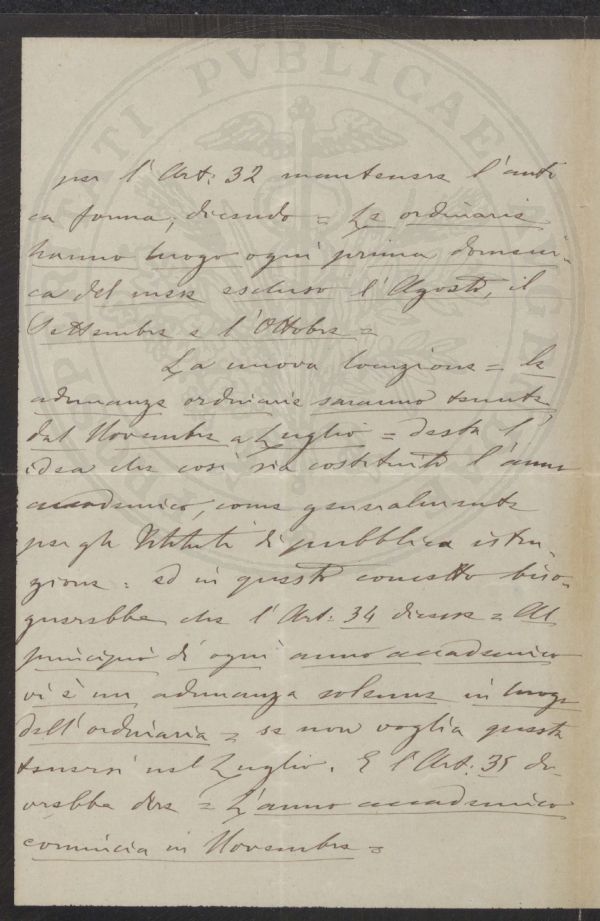 PVBLICAE
per l'Art: 32 mantenere l'anti
ca forma, dicendo = Le ordinarie
hanno luogo ogni prima domeni-
ca del mese escluso l'Agosto, il
Settembre e l'Ottobre =
La nuova locuzione = le
adunanze ordinarie saranno tenute
dal Novembre a Luglio = desta l'
idea che così sia costituito l'anno
accademico, come generalmente
per gli Istituti di pubblica istru-
zione: ed in questo concetto biso-
gnerebbe che l'Art: 34 dicesse = Al
principio di ogni anno accademico
vi è un adunanza solenne in luogo
dell'ordinaria = se non voglia questa
tenersi nel Luglio. E l'Art: 35 do-
vrebbe dire = L'anno accademico
comincia in Novembre =